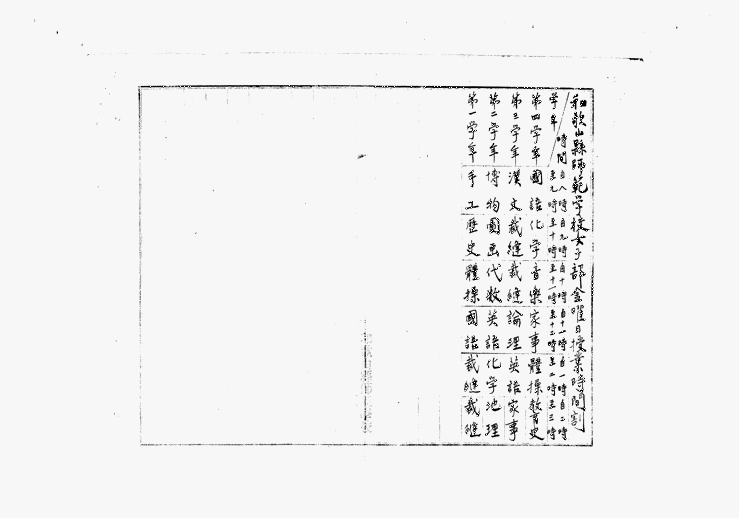 和歌山縣師範学校女子部金曜日授業時間割
時間 自八時 自九時 自十時 自十一時 自一時 自二時
学年 至九時 至十時 至十一時 至十二時 至二時 至三時
第四学年 國語 化学 音樂 家事 體操 教育史
第三学年 漢文 裁縫 裁縫 論理 英語 家事
第二学年 博物 圖画 代数 英語 化学 地理
第一学年 手工 歴史 體操 國語 裁縫 裁縫